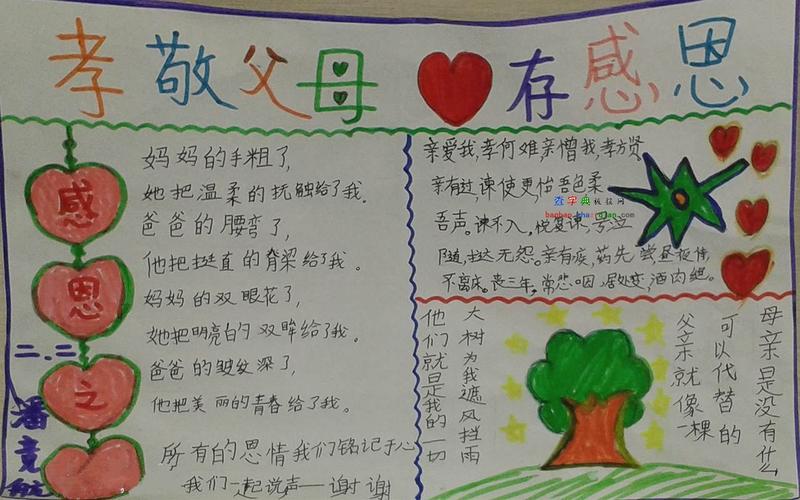 孝敬父母 存感恩
感
恩
之
二.二
潘竟航
妈妈的手粗了,
她把温柔的抚触给了我.
爸爸的腰弯了,
他把挺直的脊梁给了我.
妈妈的双眼花了,
她把明亮的双眸给了我.
爸爸的皱纹深了,
他把美丽的青春给了我.
所有的恩情我们铭记于心
我们一起说声—谢谢
亲爱我,孝何难,亲憎我,孝方贤.
亲有过,谏使更,怡吾色,柔
吾声。谏不入,悦复谏,号泣
随,挞无怨。亲有疾,药先尝,昼
不离床。丧三年,常悲咽,居处变,酒肉绝。
查字典板报网
banbao.chazidian.com
母亲是没有什么
可以代替的
父亲就像一棵
大树为我遮风挡雨
他们就是我的一切